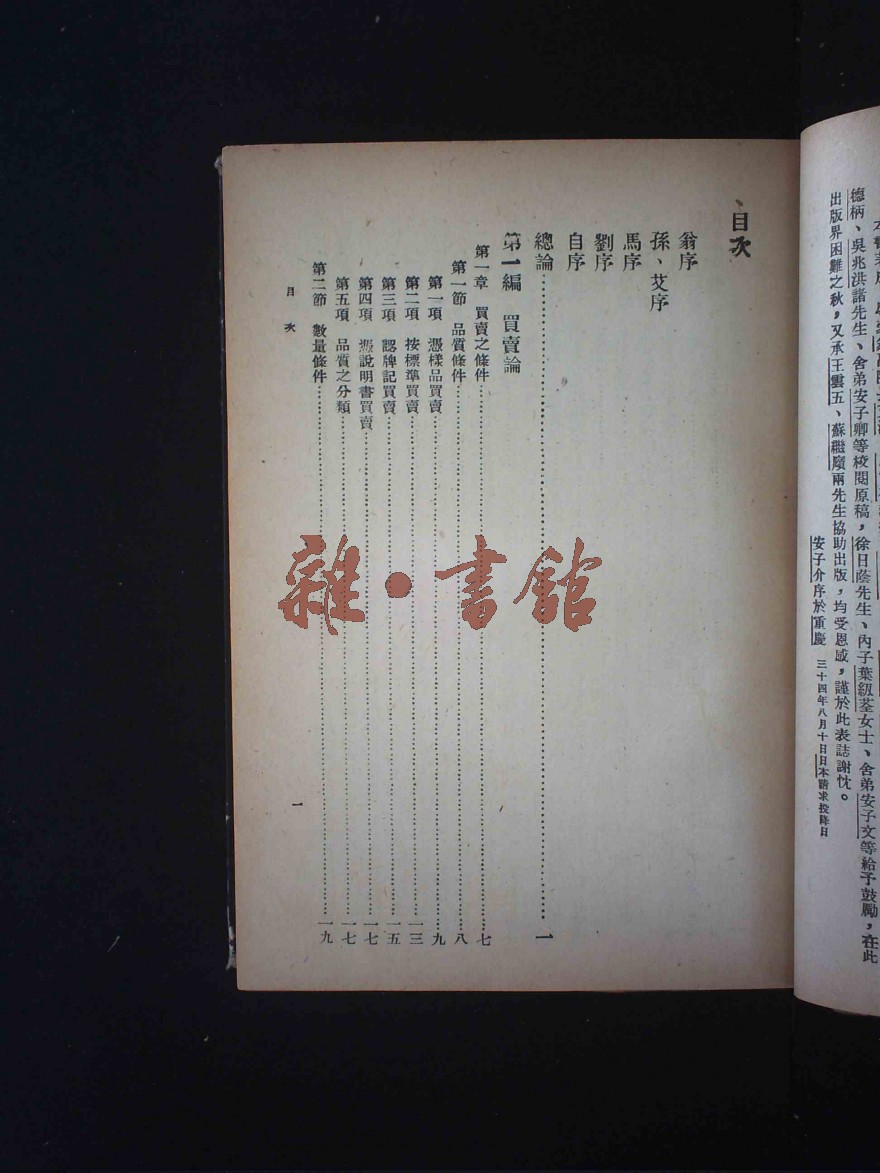 德柄、吳兆洪諸先生、舍弟安子卿等校閱原稿，徐日蔭先生、內子葉紉荃女士、舍弟安子文等給予鼓勵，在此
出版界困難之秋，又承王雲五、蘇繼廎兩先生協助出版，均受恩感，謹於此表誌謝忱。
安子介序於重慶 三十四年八月十日日本請求投降日
目次
翁序
孫、艾序
馬序
劉序
自序
總論……一
第一編 買賣論
第一章 買賣之條件……七
第一節 品質條件……八
第一項 憑樣品買賣……九
第二項 按標準買賣……一三
第三項 認牌記買賣……一五
第四項 憑說明書買賣……一七
第五項 品質之分類……一七
第二節 數量條件……一九
目次
一
雜·書館